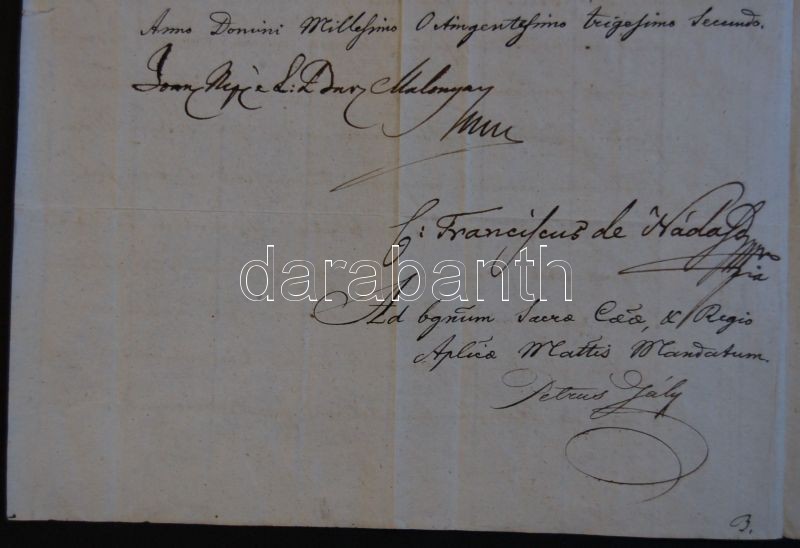 Anno Domini Millesimo Octingentesimo trigesimo Secundo.
Malonyay
C: Franciscus de Nádasd
darabanth
Ad bgnum Sacrae Caeae, & Regio
Aplicae Mattis Mandatum.
Petrus Gály
B.